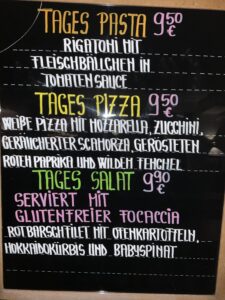 TAGES PASTA 9,50 €
RIGATONI MIT
FLEISCHBÄLLCHEN IN
TOMATENSAUCE
TAGES PIZZA 9,50 €
WEIßE PIZZA MIT MOZZARELLA, ZUCCHINI,
GERÄUCHERTER SCAMORZA, GERÖSTETEN
ROTEN PAPRIKA UND WILDEM FENCHEL
TAGES SALAT 9,90 €
SERVIERT MIT
GLUTENFREIER FOCACCIA
ROTBARSCHFILET MIT OFENKARTOFFELN,
HOKKAIDOKÜRBIS UND BABYSPINAT